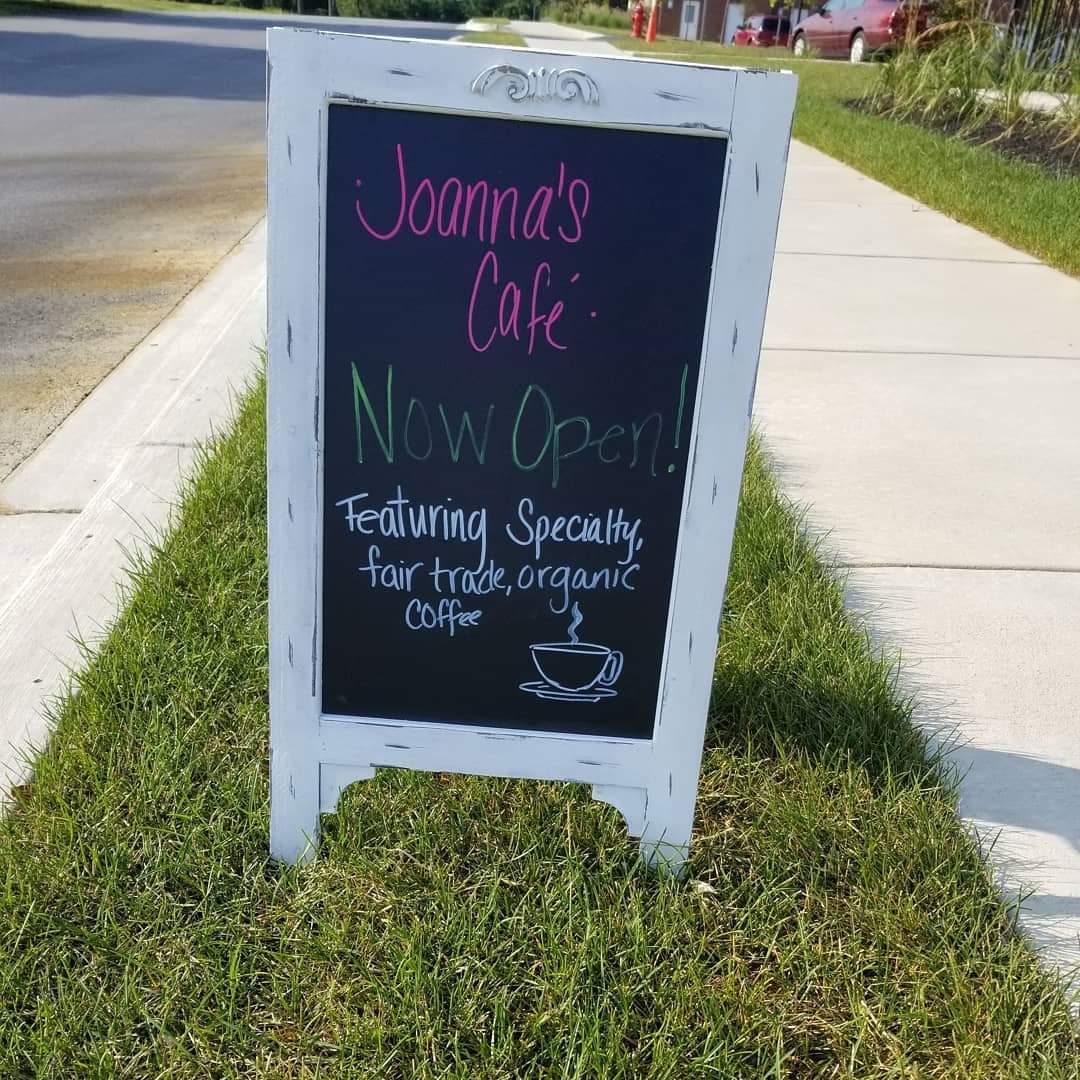 Joanna's
Café
Now Open!
Featuring Specialty,
fair trade, organic
coffee